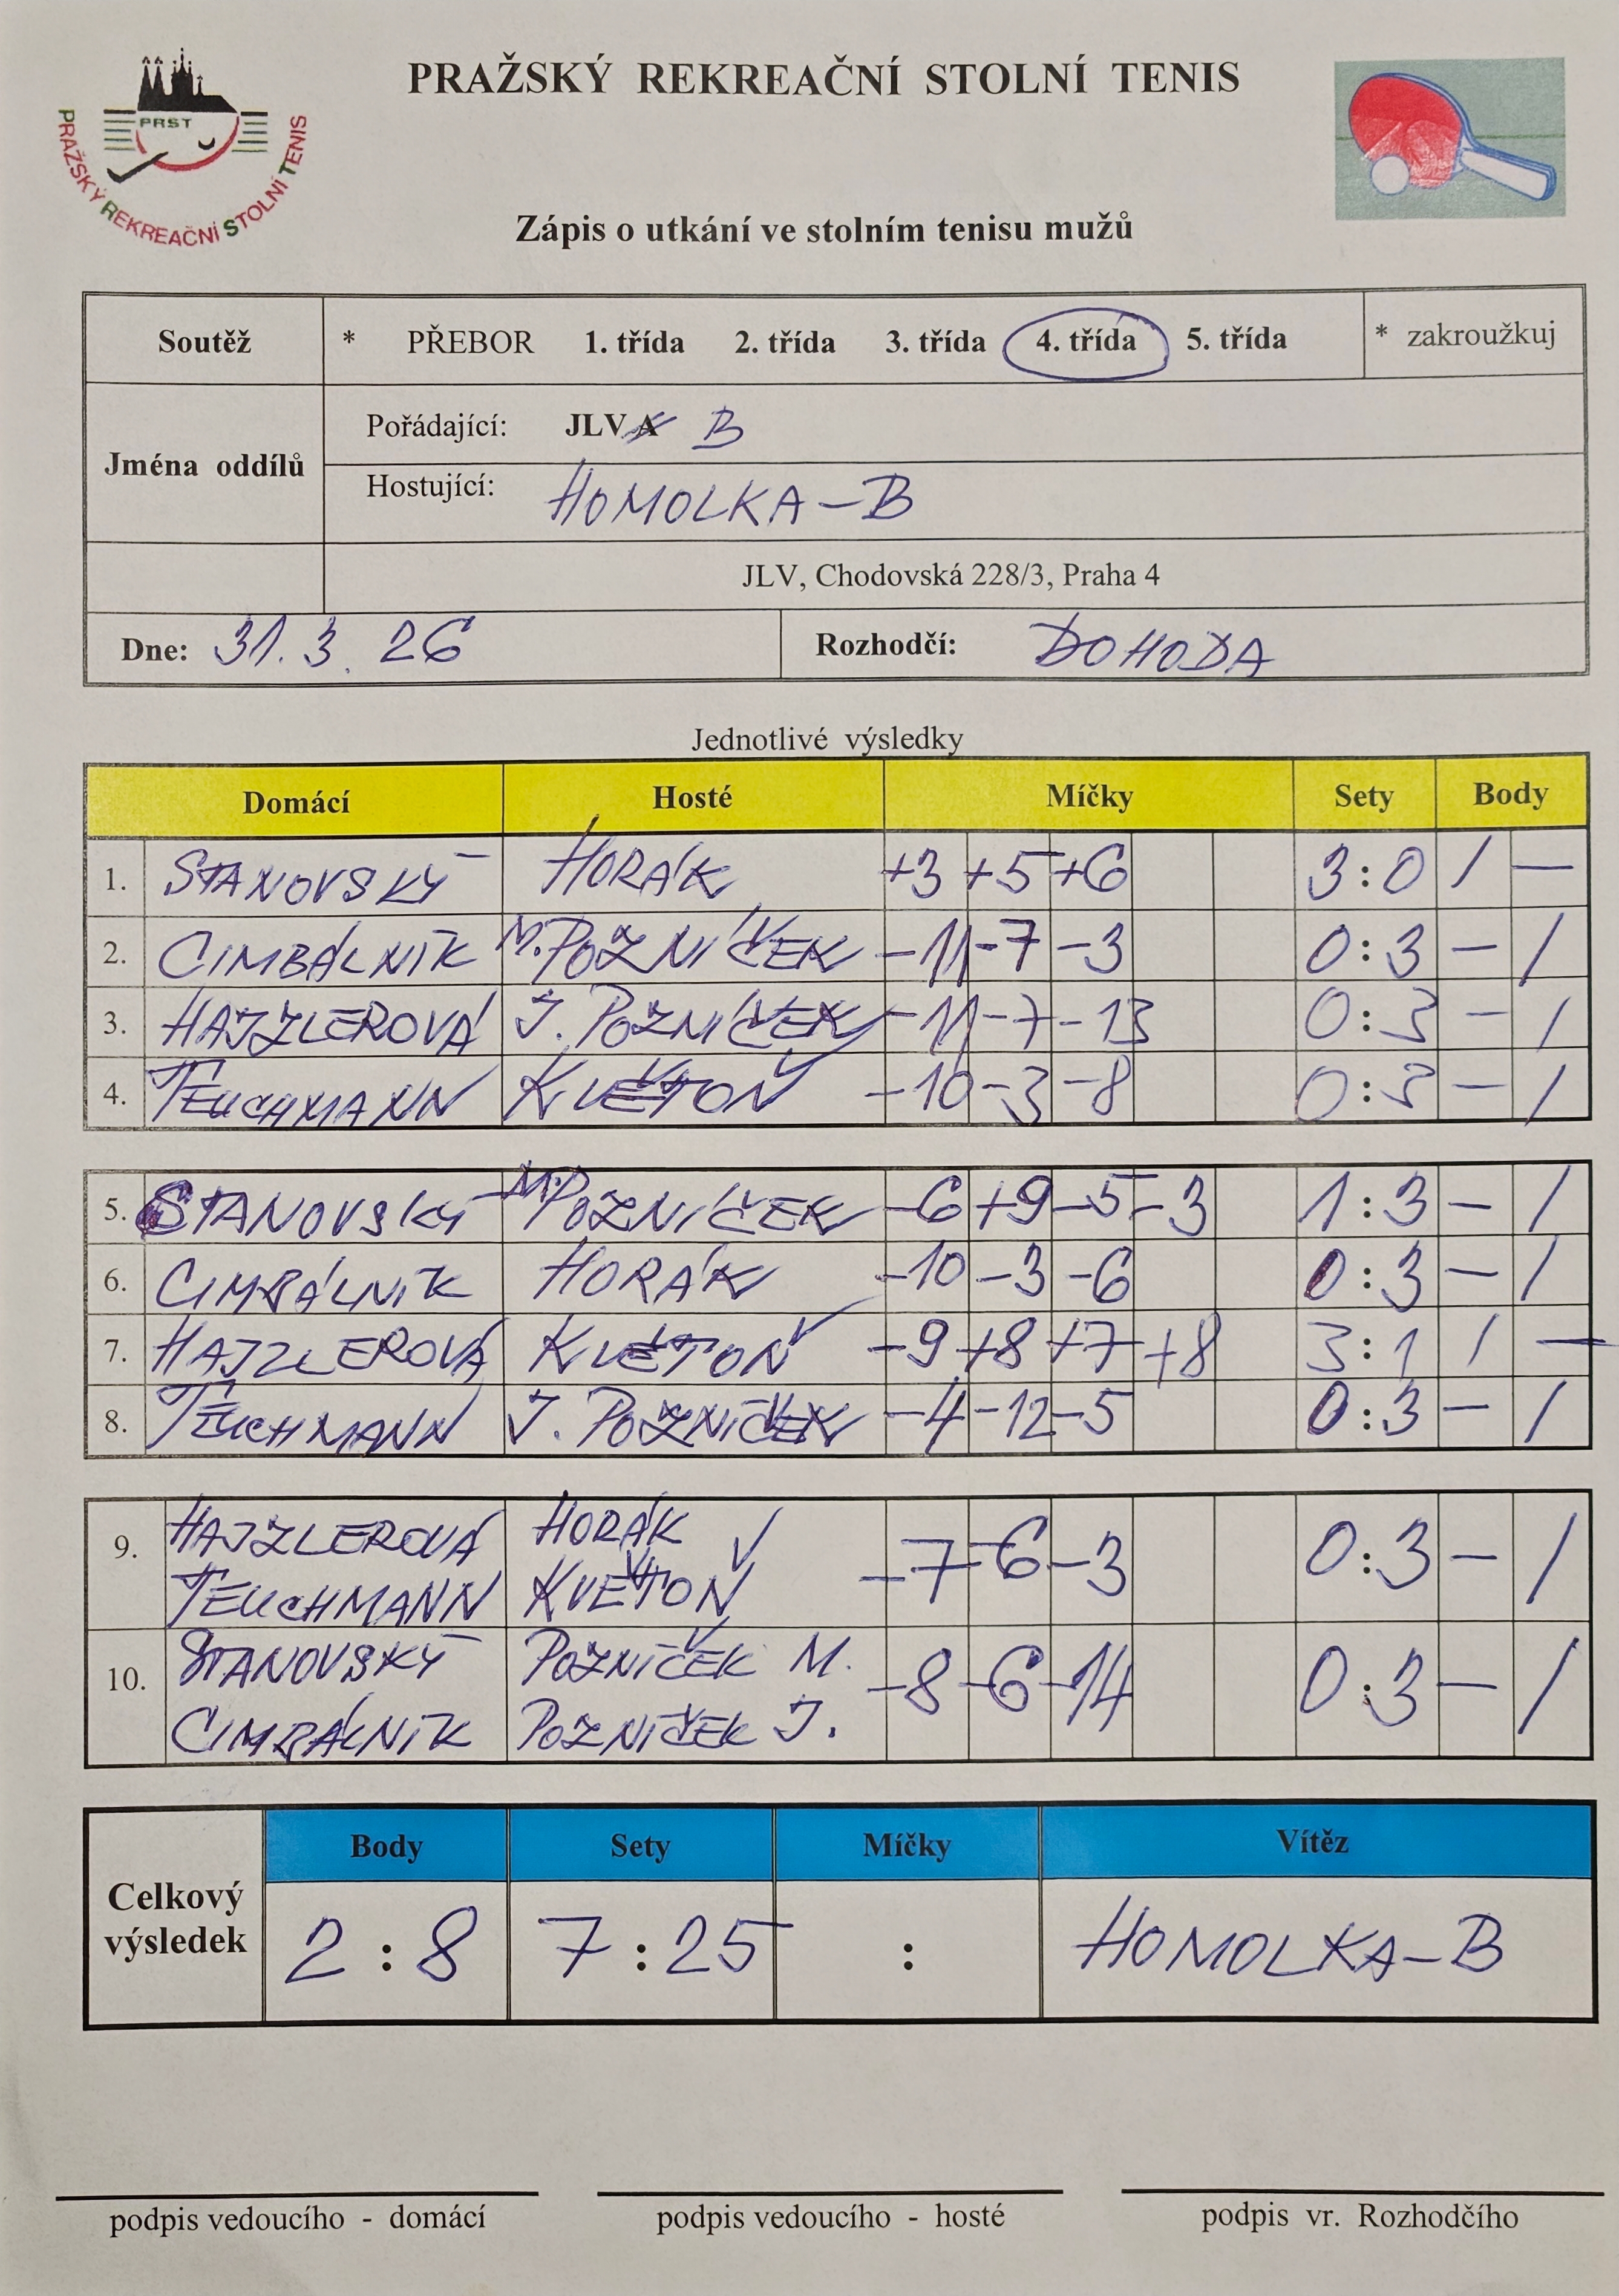 PRAŽSKÝ REKREAČNÍ STOLNÍ TENIS
PRST
PRAŽSKÝ REKREAČNÍ STOLNÍ TENIS
Zápis o utkání ve stolním tenisu mužů
Soutěž * PŘEBOR 1. třída 2. třída 3. třída 4. třída 5. třída * zakroužkuj
Jména oddílů
Pořádající: JLV A B
Hostující: HOMOLKA-B
JLV, Chodovská 228/3, Praha 4
Dne: 31. 3. 26 Rozhodčí: DOHODA
Jednotlivé výsledky
Domácí Hosté Míčky Sety Body
1. STANOVSKÝ HORÁK +3 +5 +6 3:0 / —
2. CIMBÁLNÍK M. POZNÍČEK -11 -7 -3 0:3 — /
3. HAJZLEROVÁ J. POZNÍČEK -11 -7 -13 0:3 — /
4. TEUCHMANN KVĚTOŇ -10 -3 -8 0:3 — /
5. STANOVSKÝ M. POZNÍČEK -6 +9 -5 -3 1:3 — /
6. CIMBÁLNÍK HORÁK -10 -3 -6 0:3 — /
7. HAJZLEROVÁ KVĚTOŇ -9 +8 +7 +8 3:1 / —
8. TEUCHMANN J. POZNÍČEK -4 -12 -5 0:3 — /
9. HAJZLEROVÁ HORÁK -7 -6 -3 0:3 — /
TEUCHMANN KVĚTOŇ
10. STANOVSKÝ POZNÍČEK M. -8 -6 -14 0:3 — /
CIMBÁLNÍK POZNÍČEK J.
Body Sety Míčky Vítěz
Celkový výsledek 2:8 7:25 : HOMOLKA-B
podpis vedoucího - domácí podpis vedoucího - hosté podpis vr. Rozhodčího